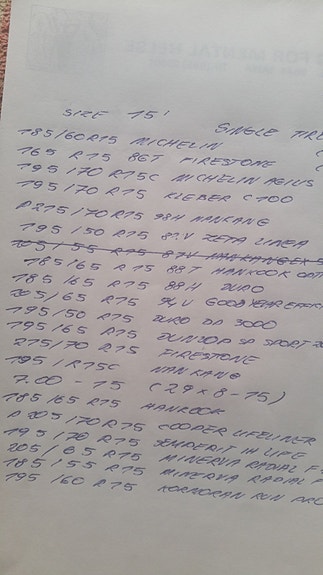 SIZE 15'
SINGLE TIRE
185/60R15 MICHELIN
165 R15 86T FIRESTONE
195/70 R15C MICHELIN AGILIS
195/70 R15 KLEBER C100
P215/70R15 98H NANKANG
195/50 R15 82V ZETA LINEA
205/55 R15 87V NANKANG
185/65 R15 88T HANKOOK OPTI
185/65 R15 88H DURO
205/65 R15 94V GOODYEAR EFFICI
195/50 R15 DURO DP 3000
195/65 R15 DUNLOP SP SPORT 20
215/70 R15 FIRESTONE
195/R15C NANKANG
7.00 - 15 (29x8-15)
185/65 R15 HANKOOK
P205/70R15 COOPER LIFELINER
195/70 R15 SEMPERIT M LIFE
205/65 R15 MINERVA RADIAL F
185/55 R15 MINERVA RADIAL F
195/60 R15 KORMORAN RUN PRO